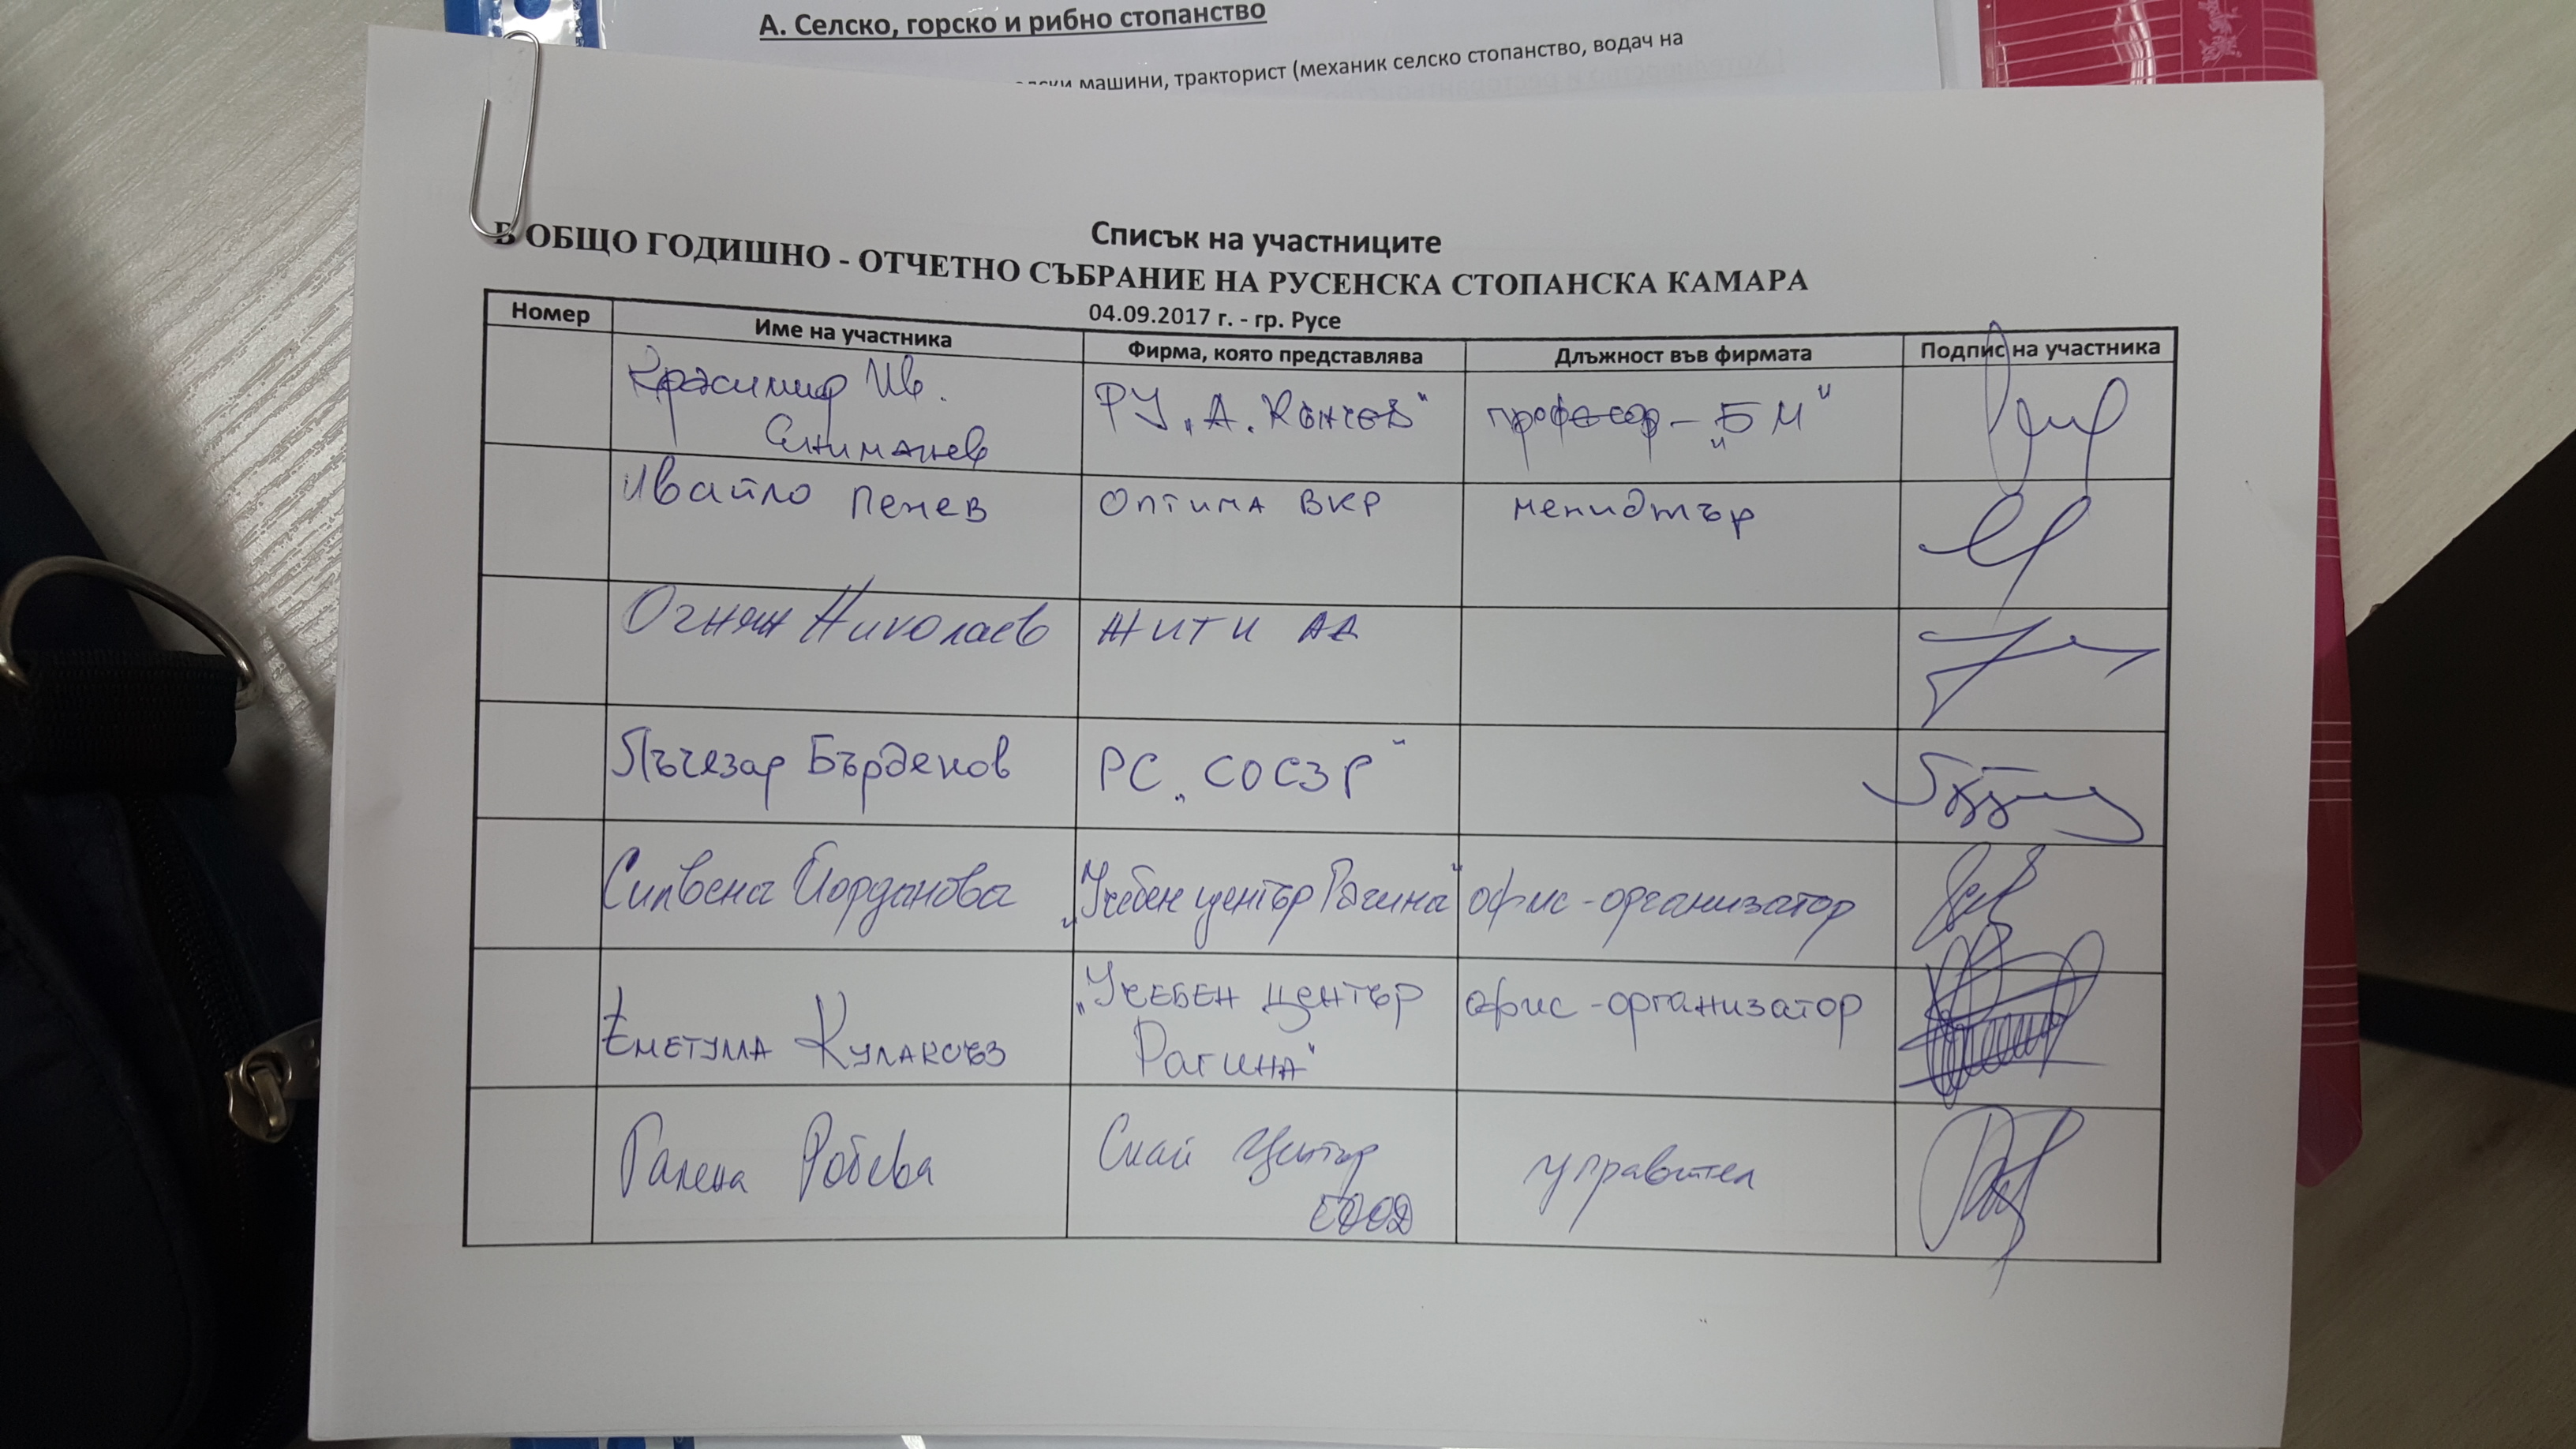 А. Селско, горско и рибно стопанство
машини, тракторист (механик селско стопанство, водач на
Списък на участниците
В ОБЩО ГОДИШНО - ОТЧЕТНО СЪБРАНИЕ НА РУСЕНСКА СТОПАНСКА КАМАРА
04.09.2017 г. - гр. Русе
Номер Име на участника Фирма, която представлява Длъжност във фирмата Подпис на участника
Красимир Ив. РУ „А. Кънчев" професор - „БМ"
Ивайло Пенев Оптима ВКР мениджър
Огнян Николаев ЖИТИ АД
Лъчезар Бърденов РС „СОСЗР"
Силвена Йорданова „Учебен център Рагина" офис - организатор
Еметулла „Учебен център офис - организатор
Рагина"
Галена Робева Скай Център управител
ЕООД